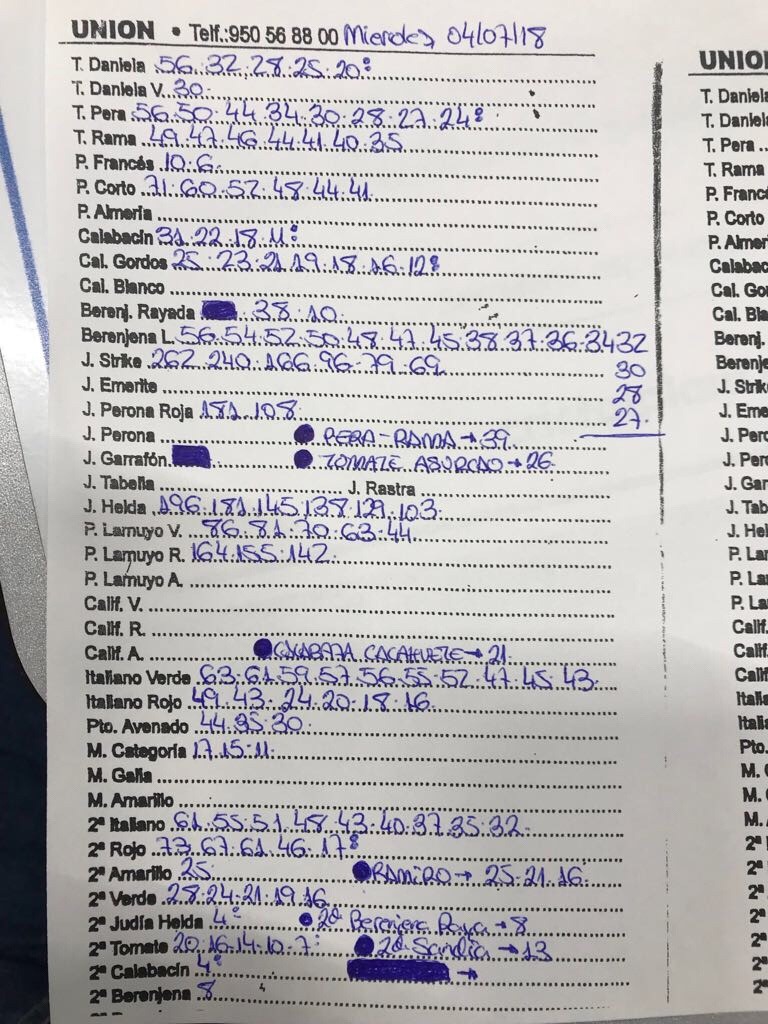 UNION • Telf.:950 56 88 00 Miercoles 04/07/18
T. Daniela 56.32.28.25.20º
T. Daniela V. 30.
T. Pera 56.50.44.34.30.28.27.24º
T. Rama 49.47.46.44.41.40.35
P. Francés 10.6.
P. Corto 71.60.52.48.44.41
P. Almería
Calabacín 31.22.18.11º
Cal. Gordos 25.23.21.19.18.16.12º
Cal. Blanco
Berenj. Rayada 38.10.
Berenjena L. 56.54.52.50.48.47.45.38.37.36.34 32
30
28
27.
J. Strike 262.240.166.96.79.69.
J. Emerite
J. Perona Roja 181.108
J. Perona ● PERA-RAMA → 39
J. Garrafón ● TOMATE ASURCAO → 26
J. Tabella J. Rastra
J. Helda 196.181.145.138.129.103.
P. Lamuyo V. 86.81.70.63.44.
P. Lamuyo R. 164.155.142.
P. Lamuyo A.
Calif. V.
Calif. R.
Calif. A. ● CALABAZA CACAHUETE → 21
Italiano Verde 63.61.59.57.56.55.52.47.45.43.
Italiano Rojo 49.43.24.20.18.16.
Pto. Avenado 44.35.30.
M. Categoría 17.15.11.
M. Galia
M. Amarillo
2ª Italiano 61.55.51.48.43.40.37.35.32.
2ª Rojo 73.67.61.46.17º
2ª Amarillo 25. ● RAMIRO → 25.21.16.
2ª Verde 28.24.21.19.16
2ª Judía Helda 4º ● 2ª Berenjena Raya → 8
2ª Tomate 20.16.14.10.7. ● 2ª Sandía → 13
2ª Calabacín 4º →
2ª Berenjena 8
UNION
T. Daniela
T. Daniela
T. Pera ..
T. Rama
P. Franc
P. Corto
P. Almer
Calabac
Cal. Go
Cal. Bla
Berenj.
Berenje
J. Strik
J. Eme
J. Perc
J. Per
J. Gar
J. Tab
J. Hel
P. La
P. La
P. La
Calif.
Calif.
Calif
Italia
Italia
Pto.
M. C
M. G
M. A
2ª I
2ª
2ª
2ª
2ª
2ª
2ª
2ª